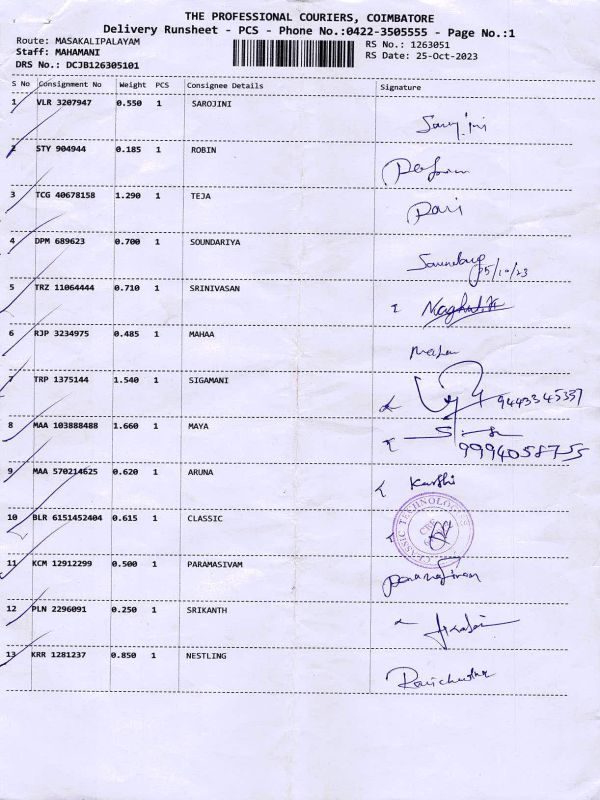 THE PROFESSIONAL COURIERS, COIMBATORE
Delivery Runsheet - PCS - Phone No.:0422-3505555 - Page No.:1
Route: MASAKALIPALAYAM
Staff: MAHAMANI
DRS No.: DCJB126305101
RS No.: 1263051
RS Date: 25-Oct-2023
S No Consignment No Weight PCS Consignee Details Signature
1 VLR 3207947 0.550 1 SAROJINI Sarojini
2 STY 904944 0.185 1 ROBIN
3 TCG 40678158 1.290 1 TEJA Pari
4 DPM 689623 0.700 1 SOUNDARIYA
25/10/23
5 TRZ 11064444 0.710 1 SRINIVASAN
6 RJP 3234975 0.485 1 MAHAA
7 TRP 1375144 1.540 1 SIGAMANI 9443345357
8 MAA 103888488 1.660 1 MAYA
9994058755
9 MAA 570214625 0.620 1 ARUNA
10 BLR 6151452404 0.615 1 CLASSIC
CLASSIC TECHNOLOGIES
CBE
11 KCM 12912299 0.500 1 PARAMASIVAM
12 PLN 2296091 0.250 1 SRIKANTH
13 KRR 1281237 0.850 1 NESTLING